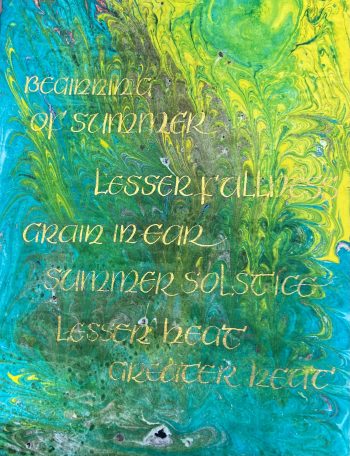 BEGINNING
OF SUMMER
LESSER FULLNESS
GRAIN IN EAR
SUMMER SOLSTICE
LESSER HEAT
GREATER HEAT